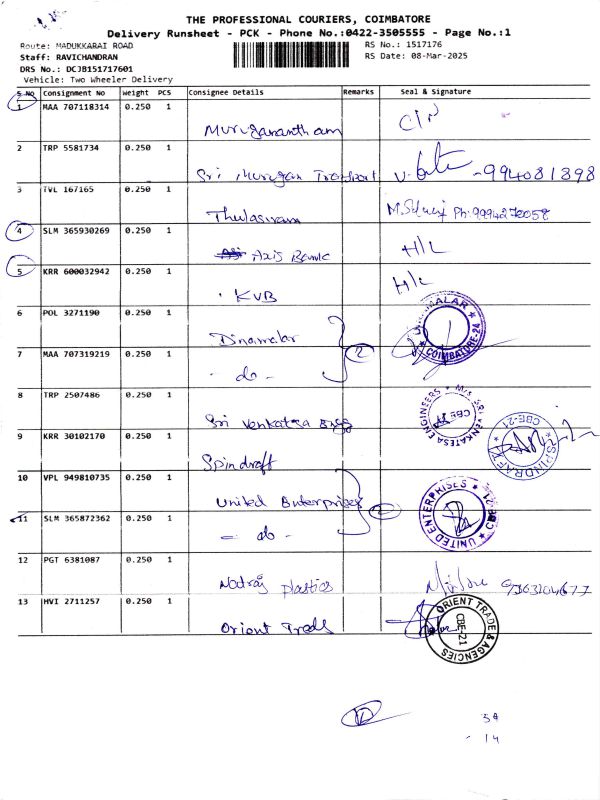 THE PROFESSIONAL COURIERS, COIMBATORE
Delivery Runsheet - PCK - Phone No.:0422-3505555 - Page No.:1
Route: MADUKKARAI ROAD RS No.: 1517176
Staff: RAVICHANDRAN RS Date: 08-Mar-2025
DRS No.: DCJB151717601
Vehicle: Two Wheeler Delivery
S No Consignment No Weight PCS Consignee Details Remarks Seal & Signature
1 MAA 707118314 0.250 1
Muruganantham
2 TRP 5581734 0.250 1
Sri Murugan Transport 994081398
3 TVL 167165 0.250 1
Thulasiram Ph:9994272058
4 SLM 365930269 0.250 1
Axis Bank H/L
5 KRR 600032942 0.250 1
KVB H/L
6 POL 3271190 0.250 1
Dinamalar
COIMBATORE-24
2
7 MAA 707319219 0.250 1
- do -
8 TRP 2507486 0.250 1
Sri Venkatesa Engg
M/s SRI VENKATESA ENGINEERS CBE
9 KRR 30102170 0.250 1
Spindraft
SPINDRAFT CBE-21
10 VPL 949810735 0.250 1
United Enterprises
UNITED ENTERPRISES CBE 21
2
11 SLM 365872362 0.250 1
- do -
12 PGT 6381087 0.250 1
Natraj plastics 9363104677
13 HVI 2711257 0.250 1
Orient Trads
ORIENT TRADE & AGENCIES CBE-21
12
14